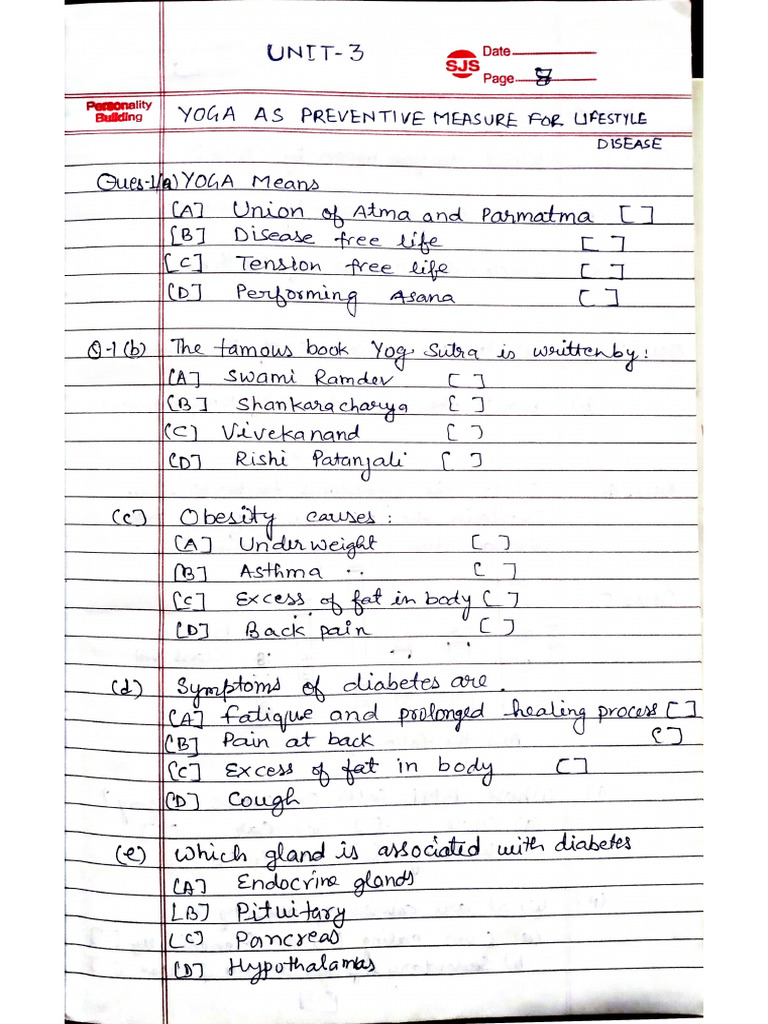 UNIT-3
SJS
Date
Page 8
Personality
Building
YOGA AS PREVENTIVE MEASURE FOR LIFESTYLE
DISEASE
Ques-1(a) YOGA Means
[A] Union of Atma and Parmatma [ ]
[B] Disease free life [ ]
[C] Tension free life [ ]
[D] Performing Asana [ ]
Q-1(b) The famous book Yog Sutra is written by:
[A] Swami Ramdev [ ]
[B] Shankaracharya [ ]
(C] Vivekanand [ )
[D] Rishi Patanjali [ ]
(c] Obesity causes:
[A] Underweight [ ]
[B] Asthma [ ]
[C] Excess of fat in body [ ]
[D] Back pain [ ]
(d) Symptoms of diabetes are.
[A] fatique and prolonged healing process [ ]
[B] Pain at back [ ]
[C] Excess of fat in body [ ]
(D] Cough
(e) which gland is associated with diabetes
[A] Endocrine glands
[B] Pituitary
[C] Pancreas
[D] Hypothalamas